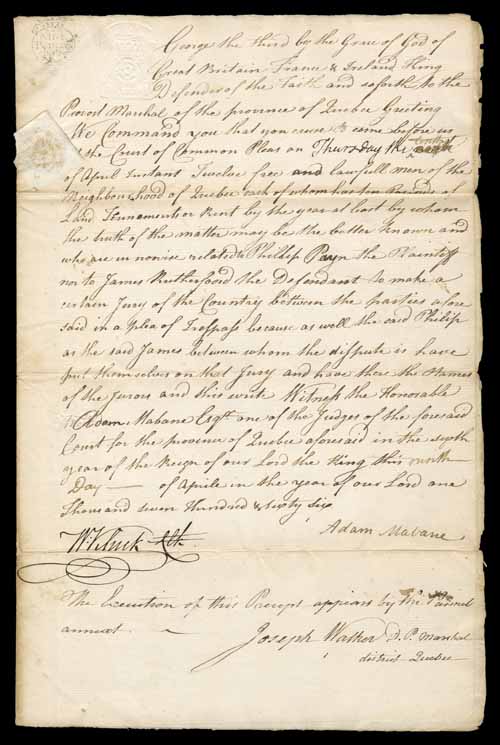 George the third by the Grace of God of
Great Britain France & Ireland King
Defender of the Faith and soforth To the
Provost Marshal of the province of Quebec Greeting
We Command you that you cause to come before us
at the Court of Common Pleas on Thursday the
of April Instant Twelve free and lawfull men of the
Neighbourhood of Quebec each of whom has ten Pounds of
Land Tennement or Rent by the year at least by whom
the truth of the matter may be the better known and
who are in nowise related to Phillip Payn the Plaintiff
nor to James Rutherfoord the Defendant to make a
certain Jury of the Country between the parties afore
said in a plea of Trespass because as well the said Philip
as the said James between whom the dispute is have
put themselves on that Jury and have there the Names
of the Jurors and this writ Witness the Honorable
Adam Mabane Esqr. one of the Judges of the foresaid
Court for the province of Quebec aforesaid in the sixth
year of the Reign of our Lord the King this ninth
Day — of Aprile in the year of our Lord one
Thousand seven Hundred & sixty six
Adam Mabane
The Execution of this Precept appears by the Pannel
annext. —
Joseph Walker D. P. Marshal
district Quebec